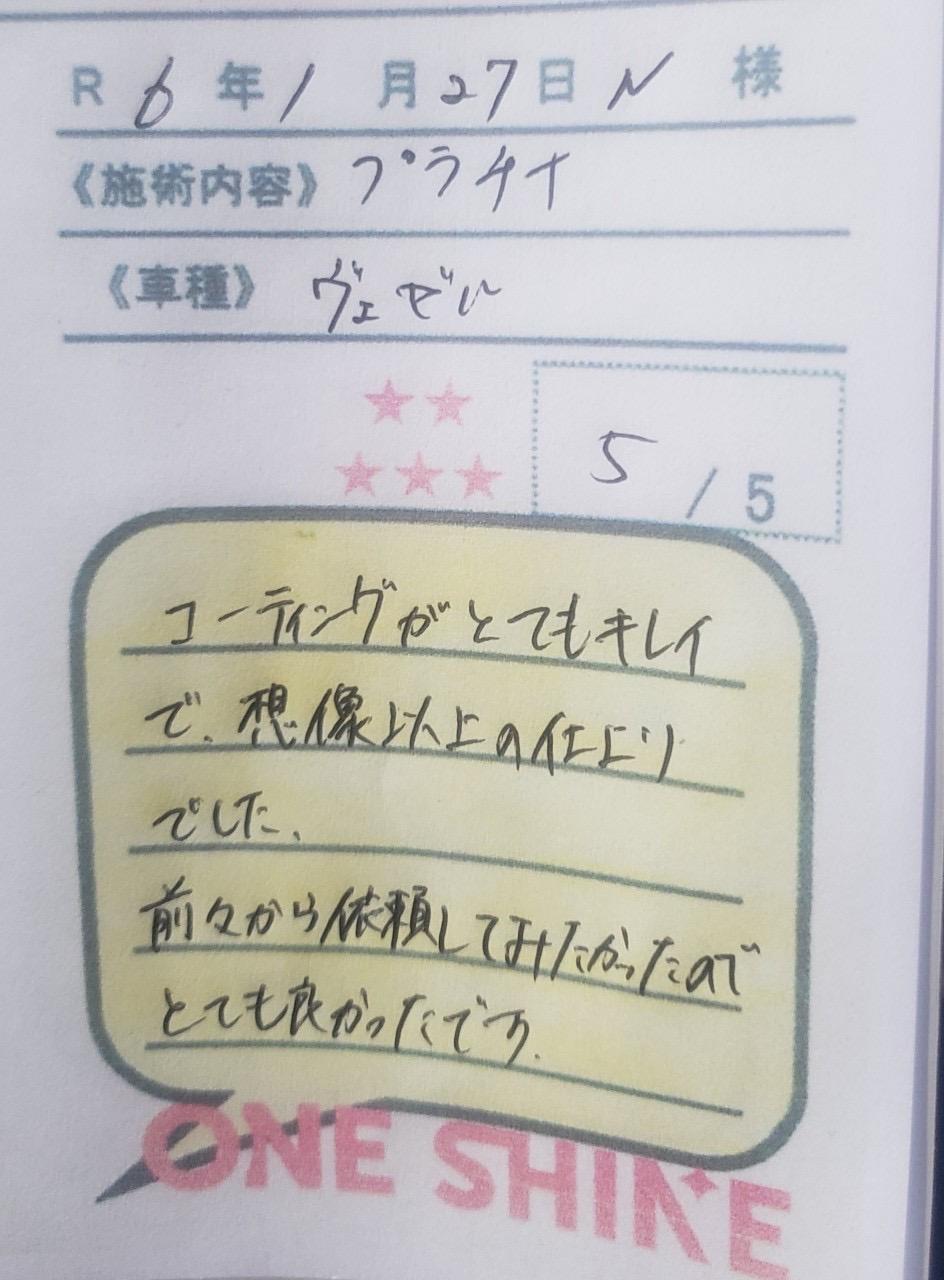 R 6年1月27日 N 様
《施術内容》プラチナ
《車種》ヴェゼル
★★
★★★
5/5
コーティングがとてもキレイ
で、想像以上の仕上り
でした、
前々から依頼してみたかったので
とても良かったです.
ONE SHINE